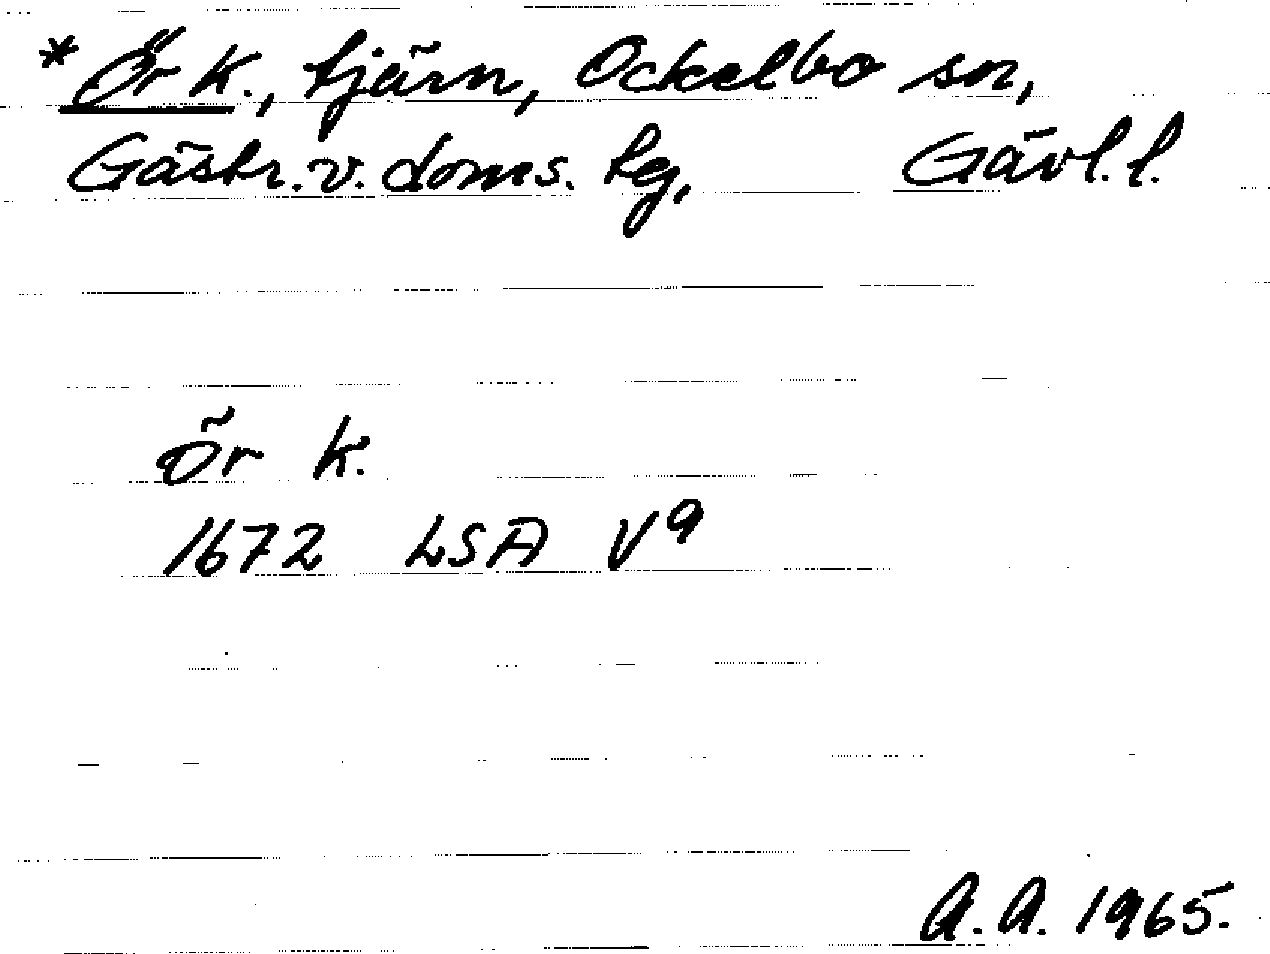 * Ör K., tjärn, Ockelbo sn,
Gästr. v. doms. tg, Gävl. l.
ör k.
1672 LSA V9
A. A. 1965.